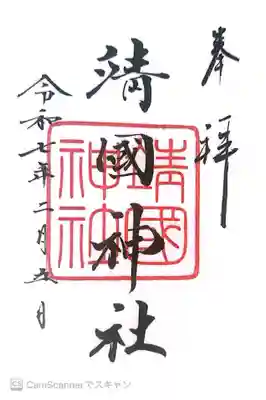 奉拝
靖國神社
靖國神社
令和七年二月五日
CS CamScannerでスキャン